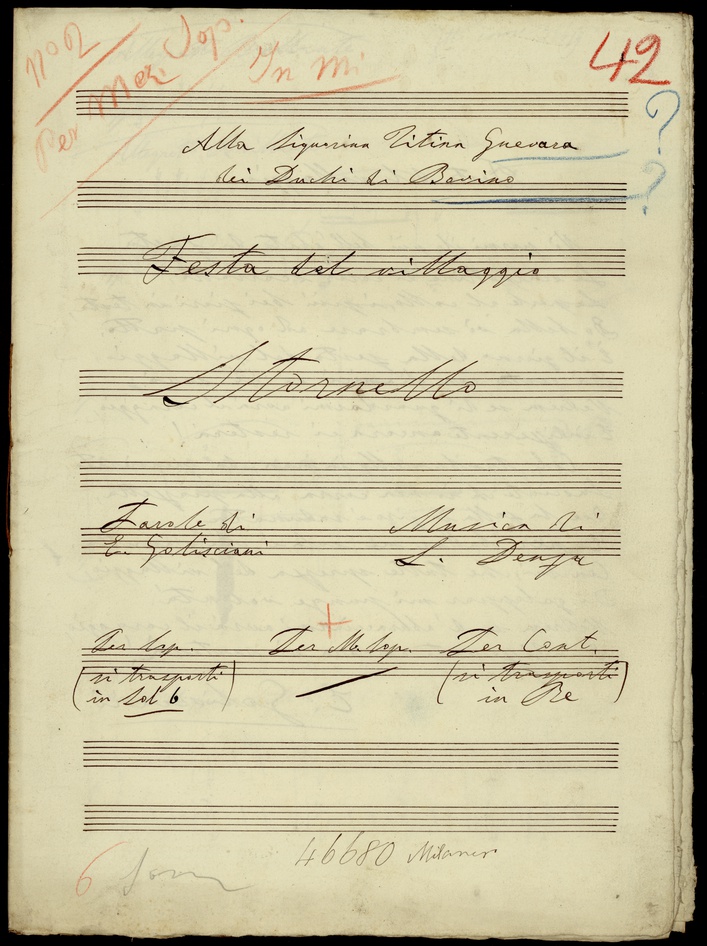 nº 2
Per Mez. Sop.
In mi
42
?
?
Alla Signorina Titina Guevara
dei Duchi di Bovino
Festa del villaggio
Stornello
Parole di
E. Golisciani
Musica di
L. Denza
Per Sop.
(si trasporti
in Sol b)
+
Per M. Sop.
Per Cont.
(si trasporti
in Re)
46680
6